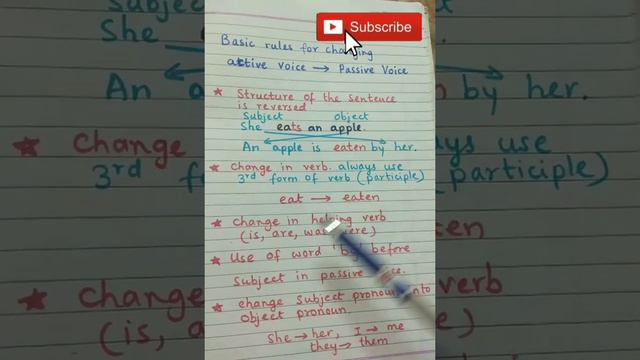 Subscribe
Basic rules for changing
active voice → Passive Voice
★ Structure of the sentence
is reversed
Subject object
She eats an apple.
An apple is eaten by her.
★ Change in verb. always use
3rd form of verb (participle)
eat → eaten
★ Change in helping verb
(is, are, was, were)
★ Use of word 'by' before
Subject in passive
★ Change Subject pronoun into
object pronoun.
She → her, I → me
they → them
She
An
by her.
★ Change
3rd
use
participle)
★ Change
(is, are
into